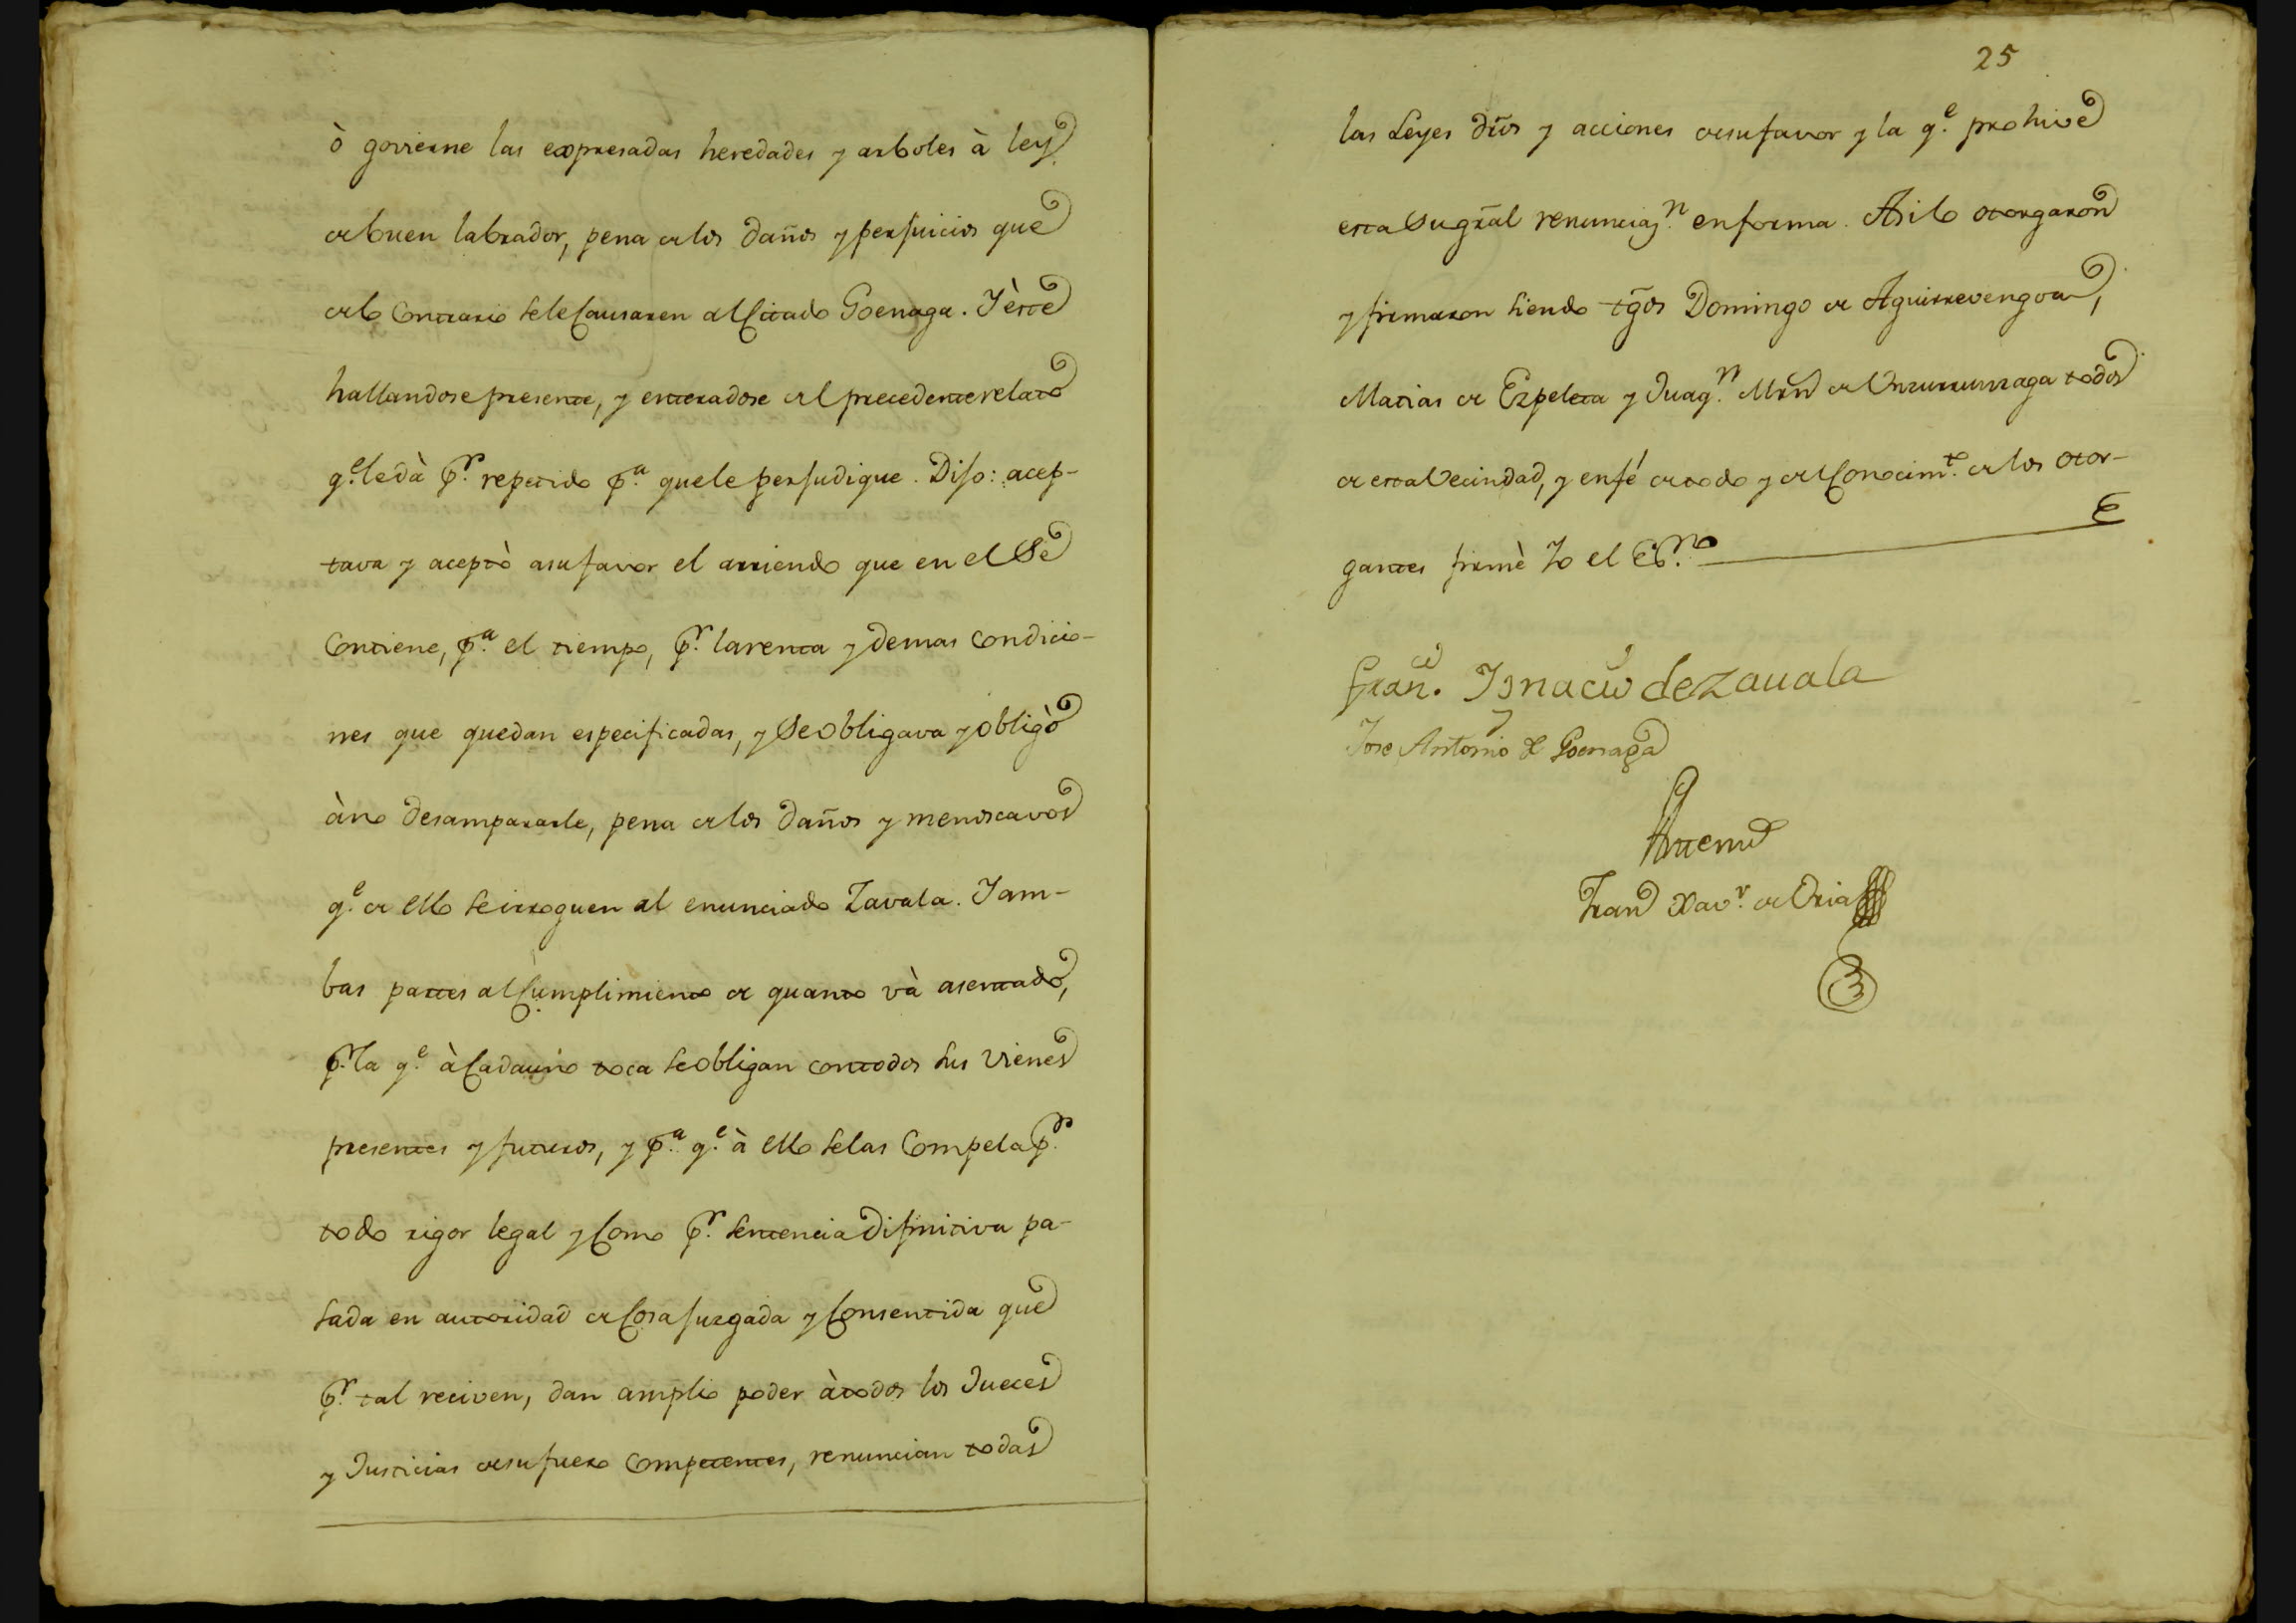 ò govierne las expresadas heredades y arboles à ley
de buen labrador, pena de los daños y perjuicios que
de lo contrario se le causaren al citado Goenaga. Y èste
hallandose presente, y enteradose del precedente relato
q.e le dà p.r repetido p.a que le perjudique. Dijo: acep-
tava y aceptò a su favor el arriendo que en el se
contiene, p.a el tiempo, p.r la renta y demas condicio-
nes que quedan especificadas, y se obligava y obligò
à no desampararle, pena de los daños y menoscavos
q.e de ello se irroguen al enunciado Zavala. Y am-
bas partes al cumplimiento de quanto và asentado,
p.r la q.e à cada uno toca se obligan con todos sus vienes
presentes y futuros, y p.a q.e à ello se las compela p.r
todo rigor legal y como p.r sentencia difinitiva pa-
sada en autoridad de cosa juzgada y consentida que
p.r tal reciven, dan amplio poder à todos los Jueces
y Justicias de su fuero competentes, renuncian todas
25
las Leyes drõs y acciones de su favor y la q.e prohive
esta su grãl renunciaz.n en forma. Asi lo otorgaron
y firmaron siendo tg̃os Domingo de Aguirrevengoa,
Matias de Ezpeleta y Juaq.n Mrñ de Unzurrunzaga todos
de esta Vecindad, y en fé de todo y del conocim.to de los otor-
gantes firmè Yo el Es.no
Fran.co Ignacio de Zauala
Jose Antonio de Goenaga
Ante mi
Fran Xav.r de Oria